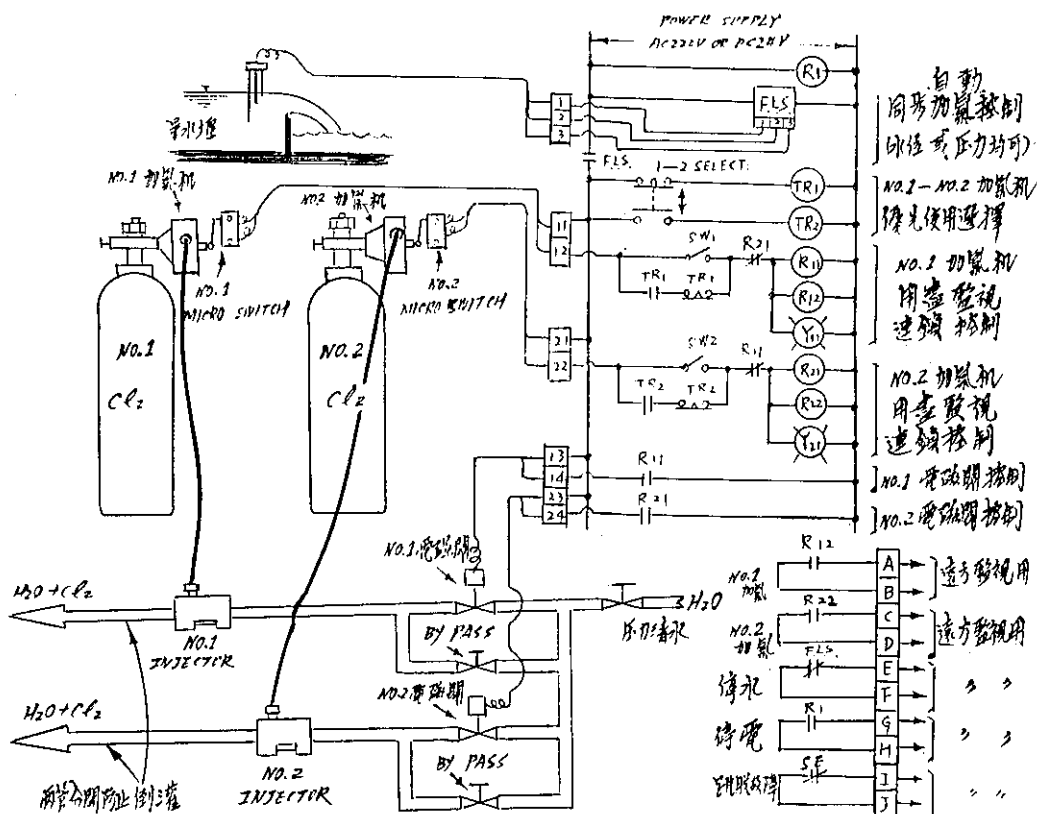 POWER SUPPLY
AC220V OR DC24V
R1
自動
同步加氯控制
(水位或压力均可)
1
2
3
F.L.S.
1 2 3
F.L.S.
1-2 SELECT.
TR1
TR2
NO.1-NO.2 加氯机
優先使用選擇
NO.1 加氯机
NO.2 加氯机
NO.1
MICRO SWITCH
NO.2
MICRO SWITCH
11
12
SW1
R21
TR1
TR1
R11
R12
Y11
NO.1 加氯机
用盡監視
連鎖控制
NO.1
Cl2
NO.2
Cl2
21
22
SW2
R11
TR2
TR2
R21
R22
Y21
NO.2 加氯机
用盡監視
連鎖控制
13
14
23
24
R11
R21
NO.1 電磁閥控制
NO.2 電磁閥控制
NO.1 電磁閥
H2O+Cl2
NO.1
INJECTOR
BY PASS
H2O
压力清水
NO.2 電磁閥
H2O+Cl2
NO.2
INJECTOR
BY PASS
兩管分開防止倒灌
NO.1
加氯
R12
A
B
遠方監視用
NO.2
加氯
R22
C
D
遠方監視用
停水
F.L.S.
E
F
〃 〃
停電
R1
G
H
〃 〃
S.F.
I
J
〃 〃